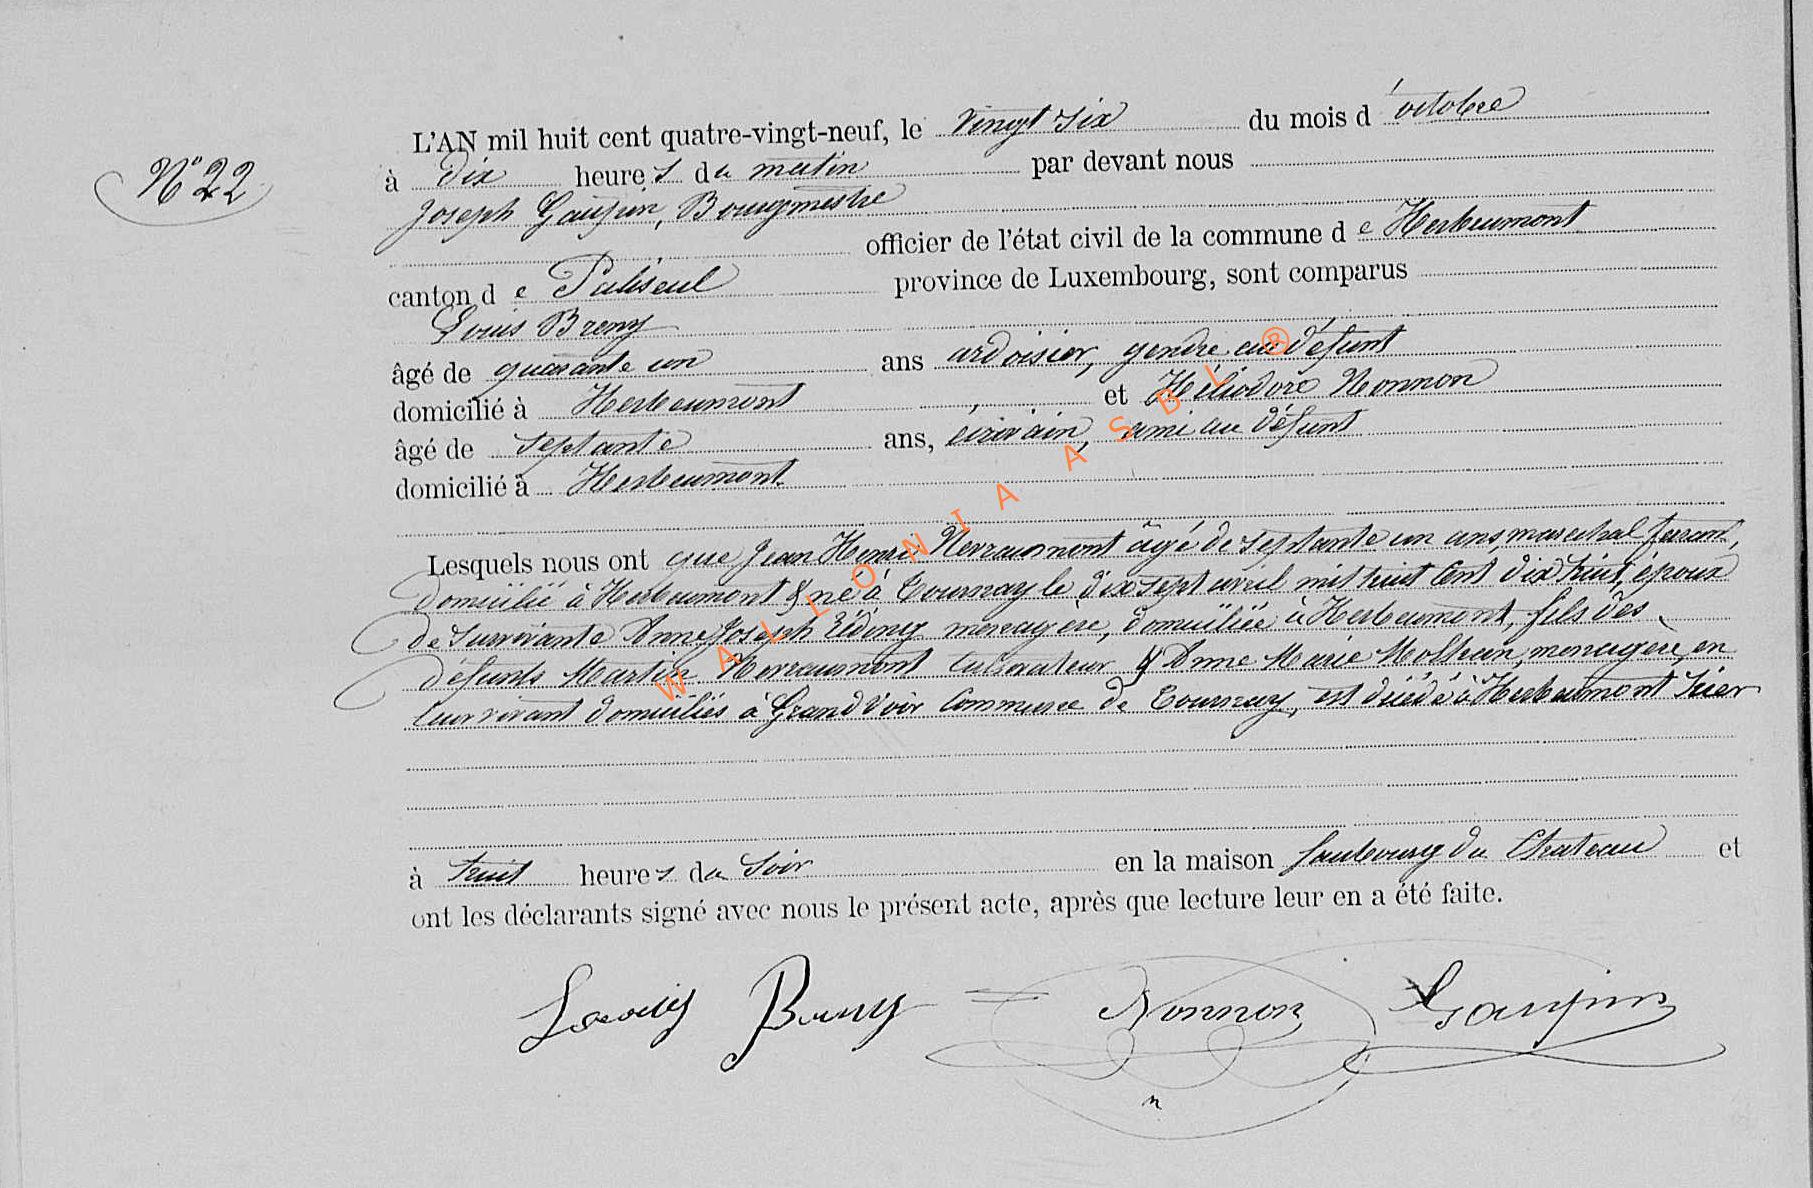 N° 22
L'AN mil huit cent quatre-vingt-neuf, le vingt six du mois d'octobre
à dix heures du matin par devant nous
Joseph Gaupin, Bourgmestre
officier de l'état civil de la commune de Herbeumont
canton de Paliseul province de Luxembourg, sont comparus
Louis Breny
âgé de quarante un ans ardoisier, gendre au défunt
domicilié à Herbeumont et Héliodore Nonnon
âgé de septante ans, écrivain, ami au défunt
domicilié à Herbeumont.
Lesquels nous ont que Jean Henri Nerraumont âgé de septante un ans, marechal ferrant,
domicilié à Herbeumont & né à Tournay le dix sept avril mil huit cent dix huit, époux
de survivante Anne Joseph menagère, domiciliée à Herbeumont, fils des
défunts Martin Nerraumont cultivateur & Anne Marie menagère, en
leur vivant domiciliés à Grandvoir Commune de Tournay, est décédé à Herbeumont hier
à huit heures du soir en la maison faubourg du Chateau et
ont les déclarants signé avec nous le présent acte, après que lecture leur en a été faite.
Louis Breny Nonnon JGaupin
WALLONIA ASBL ®